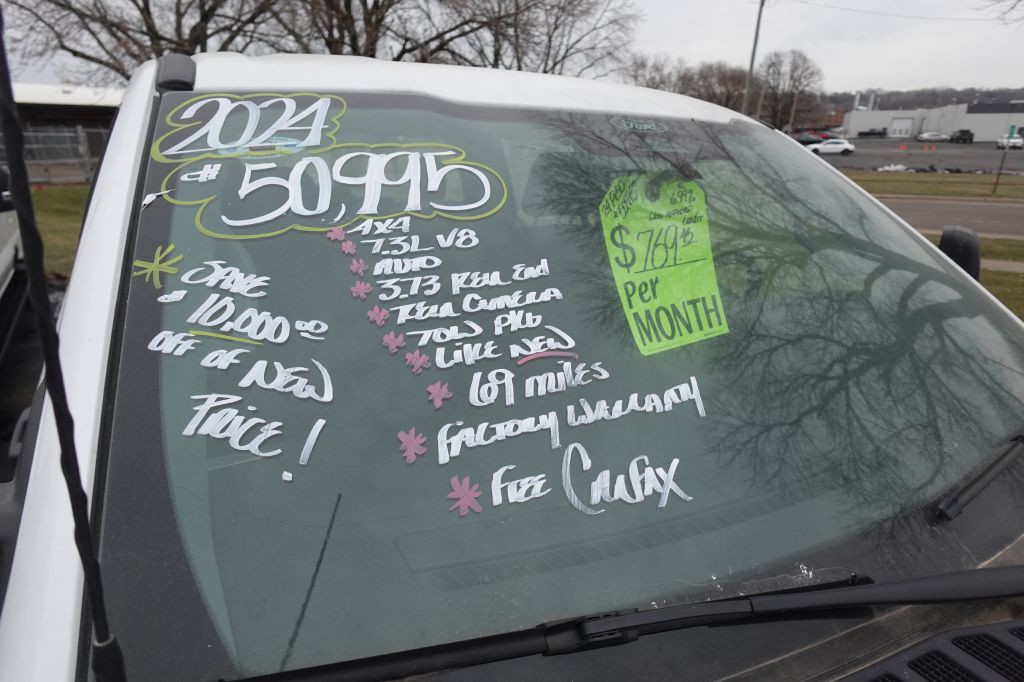 2024
# 50,995
4x4
7.3L V8
AUTO
3.73 REAR END
REAR CAMERA
TOW PKG
LIKE NEW
69 miles
FACTORY WARRANTY
FREE CARFAX
SAVE
10,000 00
OFF OF NEW
PRICE!
Ford
6.99%
$769
Per
MONTH